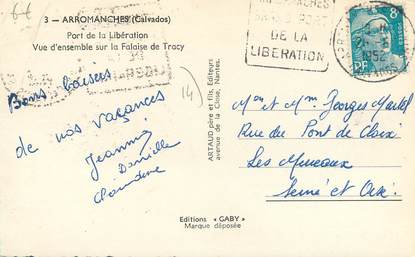 3 - ARROMANCHES (Calvados)
Port de la Libération
Vue d'ensemble sur la Falaise de Tracy
Bons baisers
de nos vacances
Jeannie
Danielle
Claudine
14)
ARTAUD père et fils, Éditeurs
avenue de la Close, Nantes.
Editions "GABY"
Marque déposée
DE LA
LIBERATION
8F
POSTES
RF
1952
Mr et Mme Georges Martel
Rue du Pont de
Les Mureaux
Seine et Oise